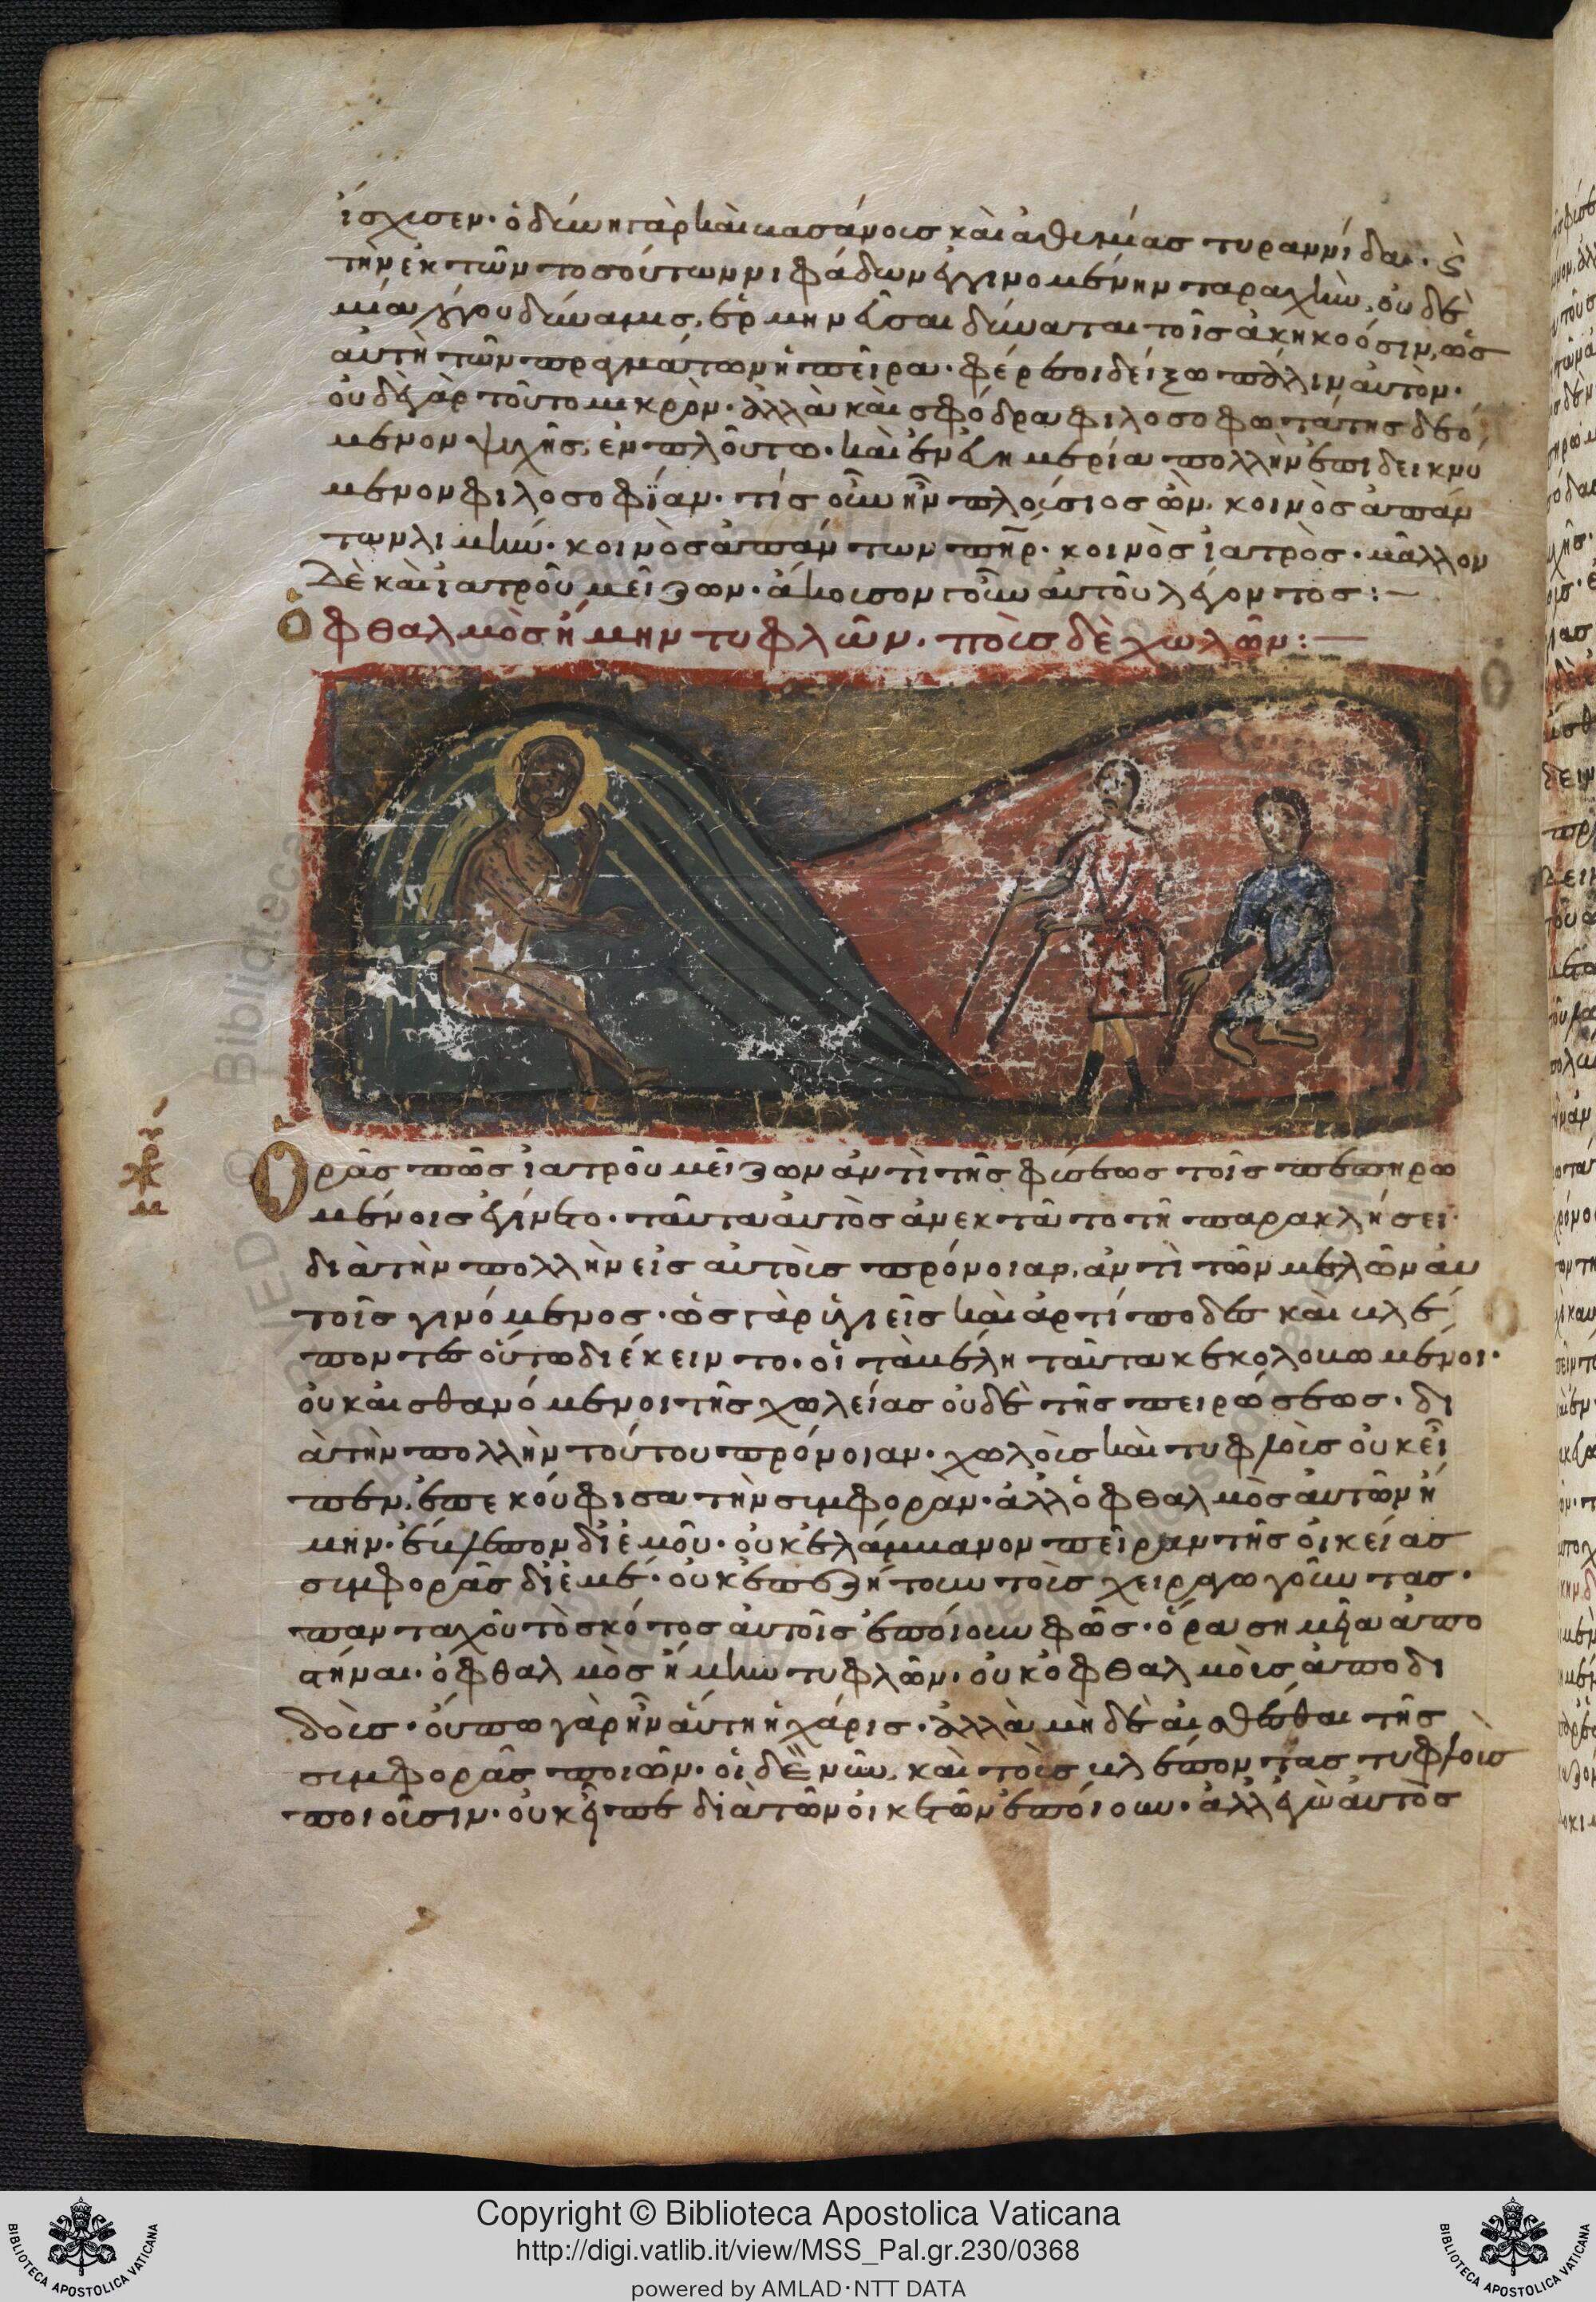 ἴσχυσεν· ὀδύνη γὰρ καὶ βασάνοις καὶ ἀθυμίας τυραννίδα· ϛ
τὴν ἐκ τῶν τοσούτων νιφάδων ἐγγινομένην ταραχὴν, οὐδὲ
μία λόγου δύναμις, ἑρμηνεῦσαι δύναται τοῖς ἀκηκοόσιν, ὡς
αὐτὴ τῶν πραγμάτων ἡ πεῖρα· φέρε σοι δείξω πάλιν αὐτὸν·
οὐδὲ γὰρ τοῦτο μικρὸν· ἀλλὰ καὶ σφόδρα φιλοσοφωτάτης δεό
μενον ψυχῆς, ἐν πλούτω· καὶ ἐν εὐημερία πολλὴν ἐπιδεικνύ
μενον φιλοσοφΐαν· τίς οὖν ἦν πλούσιος ὢν, κοινὸς ἁπάν
των λιμὴν· κοινὸς ἁπάντων πῆρ· κοινὸς ἰατρὸς· μᾶλλον
δὲ καὶ ἰατροῦ μεῖζων· ἄκουσον γοῦν αὐτοῦ λέγοντος:—
Ὀφθαλμὸς ἤμην τυφλῶν· ποὺς δὲ χωλῶν:—
Ὁρᾶς πῶς ἰατροῦ μεῖζων ἀντὶ τῆς φύσεως τοῖς πεπηρω
μένοις ἐγίνετο· ταῦτα αὐτὸς ἀνεκτᾶτο τῆ παρακλήσει·
διὰ τὴν πολλὴν εἰς αὐτοὺς πρόνοιαν, ἀντὶ τῶν μελῶν αὐ
τοῖς γινόμενος· ὡς γὰρ ὑγιεῖς καὶ ἀρτίποδες καὶ βλέ
ποντες οὕτω διέκειντο· οἱ τὰ μέλη ταῦτα κεκολοβωμένοι·
οὐκ αἰσθανόμενοι τῆς χωλείας οὐδὲ τῆς πειρώσεως· δι
ὰ τὴν πολλὴν τούτου πρόνοιαν· χωλοὺς καὶ τυφλοὺς οὐκ εἶ
πεν, ἐπεκούφισα τὴν συμφορὰν· ἀλλ' ὀφθαλμὸς αὐτῶν ἤ
μην· ἔβλεπον δι' ἐμοῦ· οὐκ ἐλάμβανον πεῖραν τῆς οἰκείας
συμφορᾶς δι' ἐμέ· οὐκ ἐπεζήτουν τοὺς χειραγωγοῦντας·
πανταχοῦ τὸ σκότος αὐτοῖς ἐποίουν φῶς· ὅρα σημεῖα ἀπο
στήναι· ὀφθαλμὸς ἤμην τυφλῶν· οὐκ ὀφθαλμοὺς ἀποδι
δοὺς· οὔπω γὰρ ἦν αὕτη ἡ χάρις· ἀλλὰ μηδὲ αἰσθέσθαι τῆς
συμφορᾶς ποιῶν· οἱ δὲ νῦν, καὶ τοὺς βλέποντας τυφλοὺς
ποιοῦσιν· οὐκ εἶπε διὰ τῶν οἰκετῶν ἐποίουν· ἀλλ' ἐγὼ αὐτὸς
Copyright © Biblioteca Apostolica Vaticana
http://digi.vatlib.it/view/MSS_Pal.gr.230/0368
powered by AMLAD·NTT DATA
BIBLIOTECA APOSTOLICA VATICANA
BIBLIOTECA APOSTOLICA VATICANA